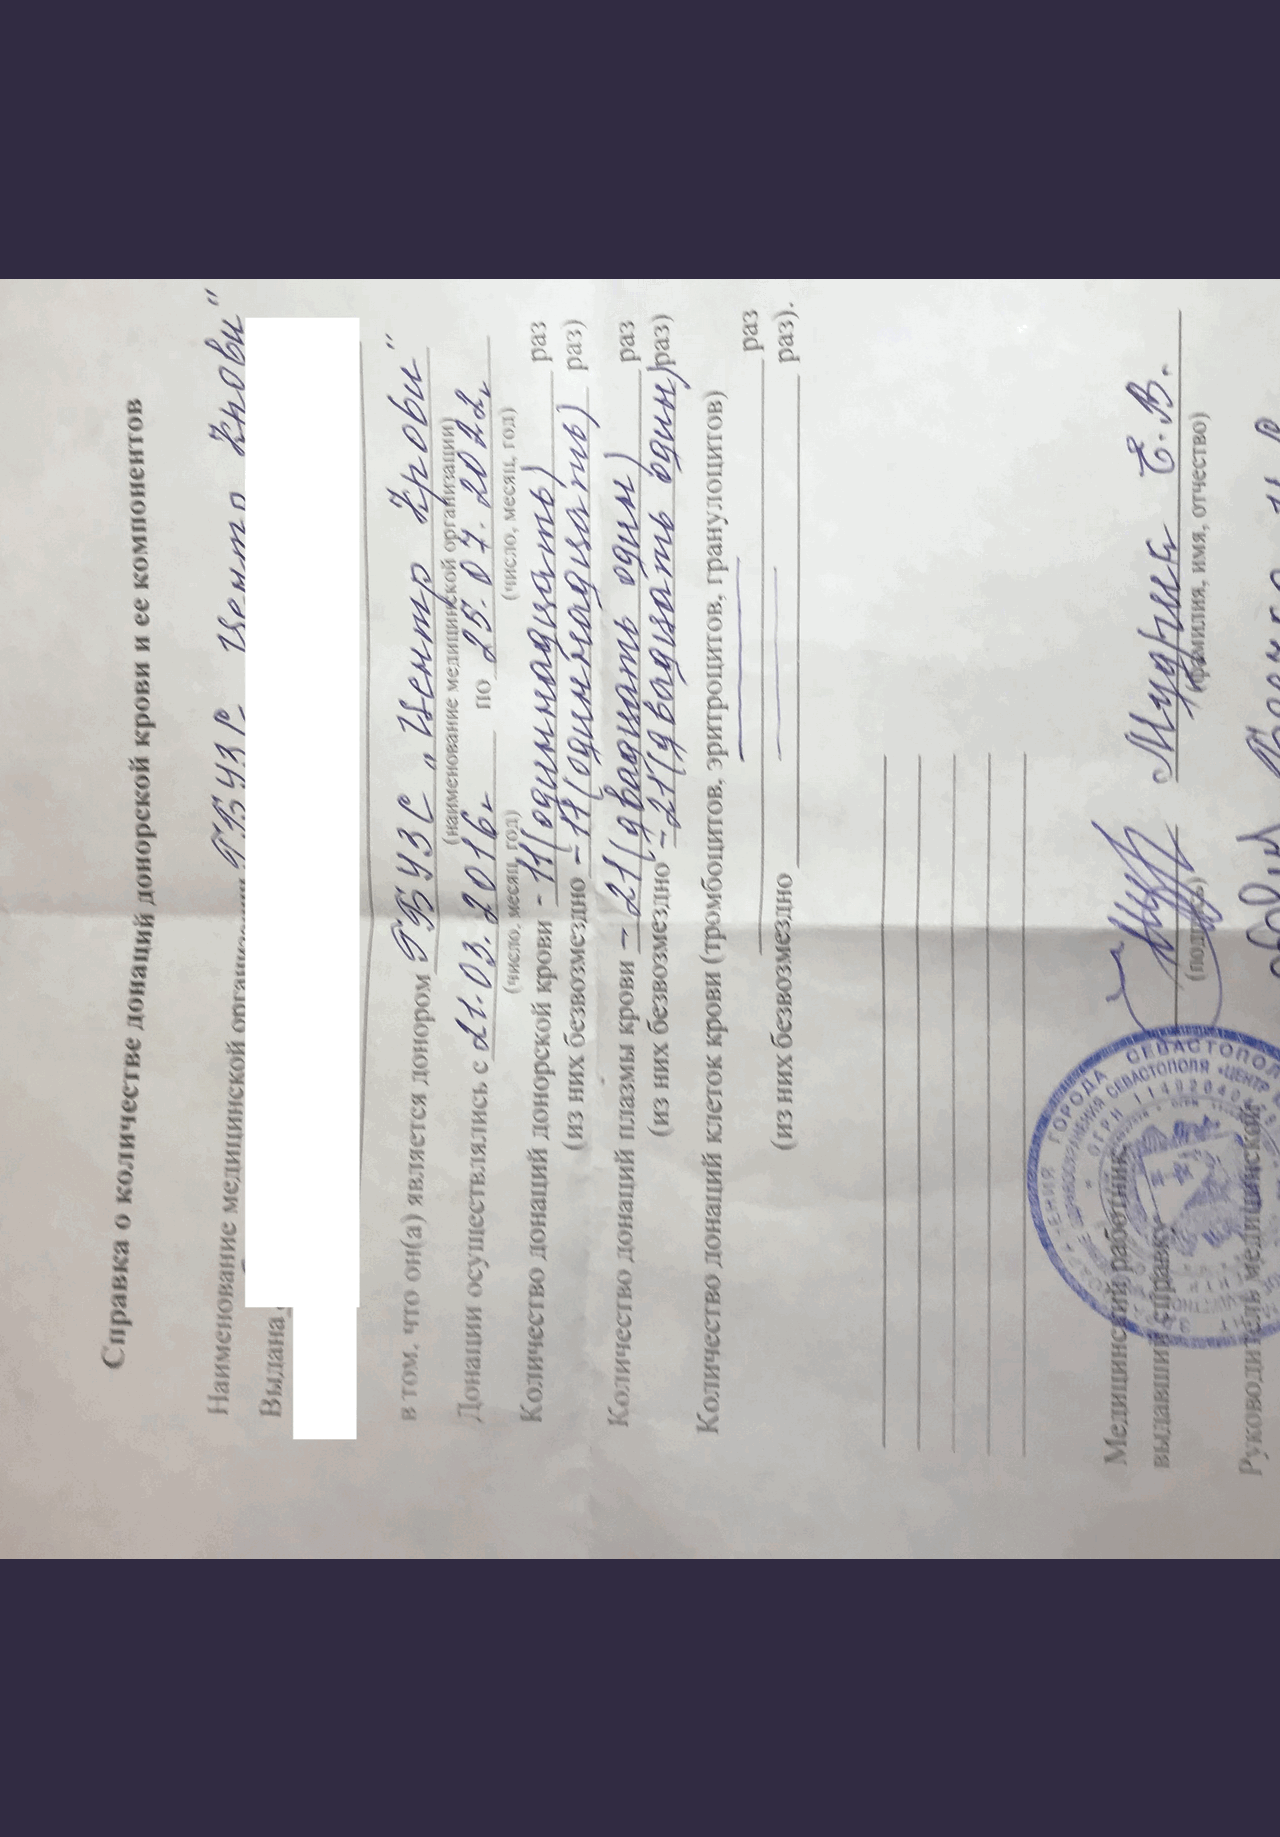 Справка о количестве донаций донорской крови и ее компонентов
Наименование медицинской организации ГБУЗС "Центр Крови"
Выдана
в том, что он(а) является донором ГБУЗС "Центр Крови"
(наименование медицинской организации)
Донации осуществлялись с 21.03.2016г по 25.07.2022г
(число, месяц, год) (число, месяц, год)
Количество донаций донорской крови - 11(одиннадцать) раз
(из них безвозмездно -11(одиннадцать) раз)
Количество донаций плазмы крови - 21(двадцать один) раз
(из них безвозмездно -21(двадцать один)раз)
Количество донаций клеток крови (тромбоцитов, эритроцитов, гранулоцитов)
раз
(из них безвозмездно раз).
Медицинский работник,
выдавший справку Мудрик Е.В.
(подпись) (фамилия, имя, отчество)
Руководитель медицинской
ГОРОДА СЕВАСТОПОЛ
ЗДРАВООХРАНЕНИЯ СЕВАСТОПОЛЯ «ЦЕНТР
ОГРН